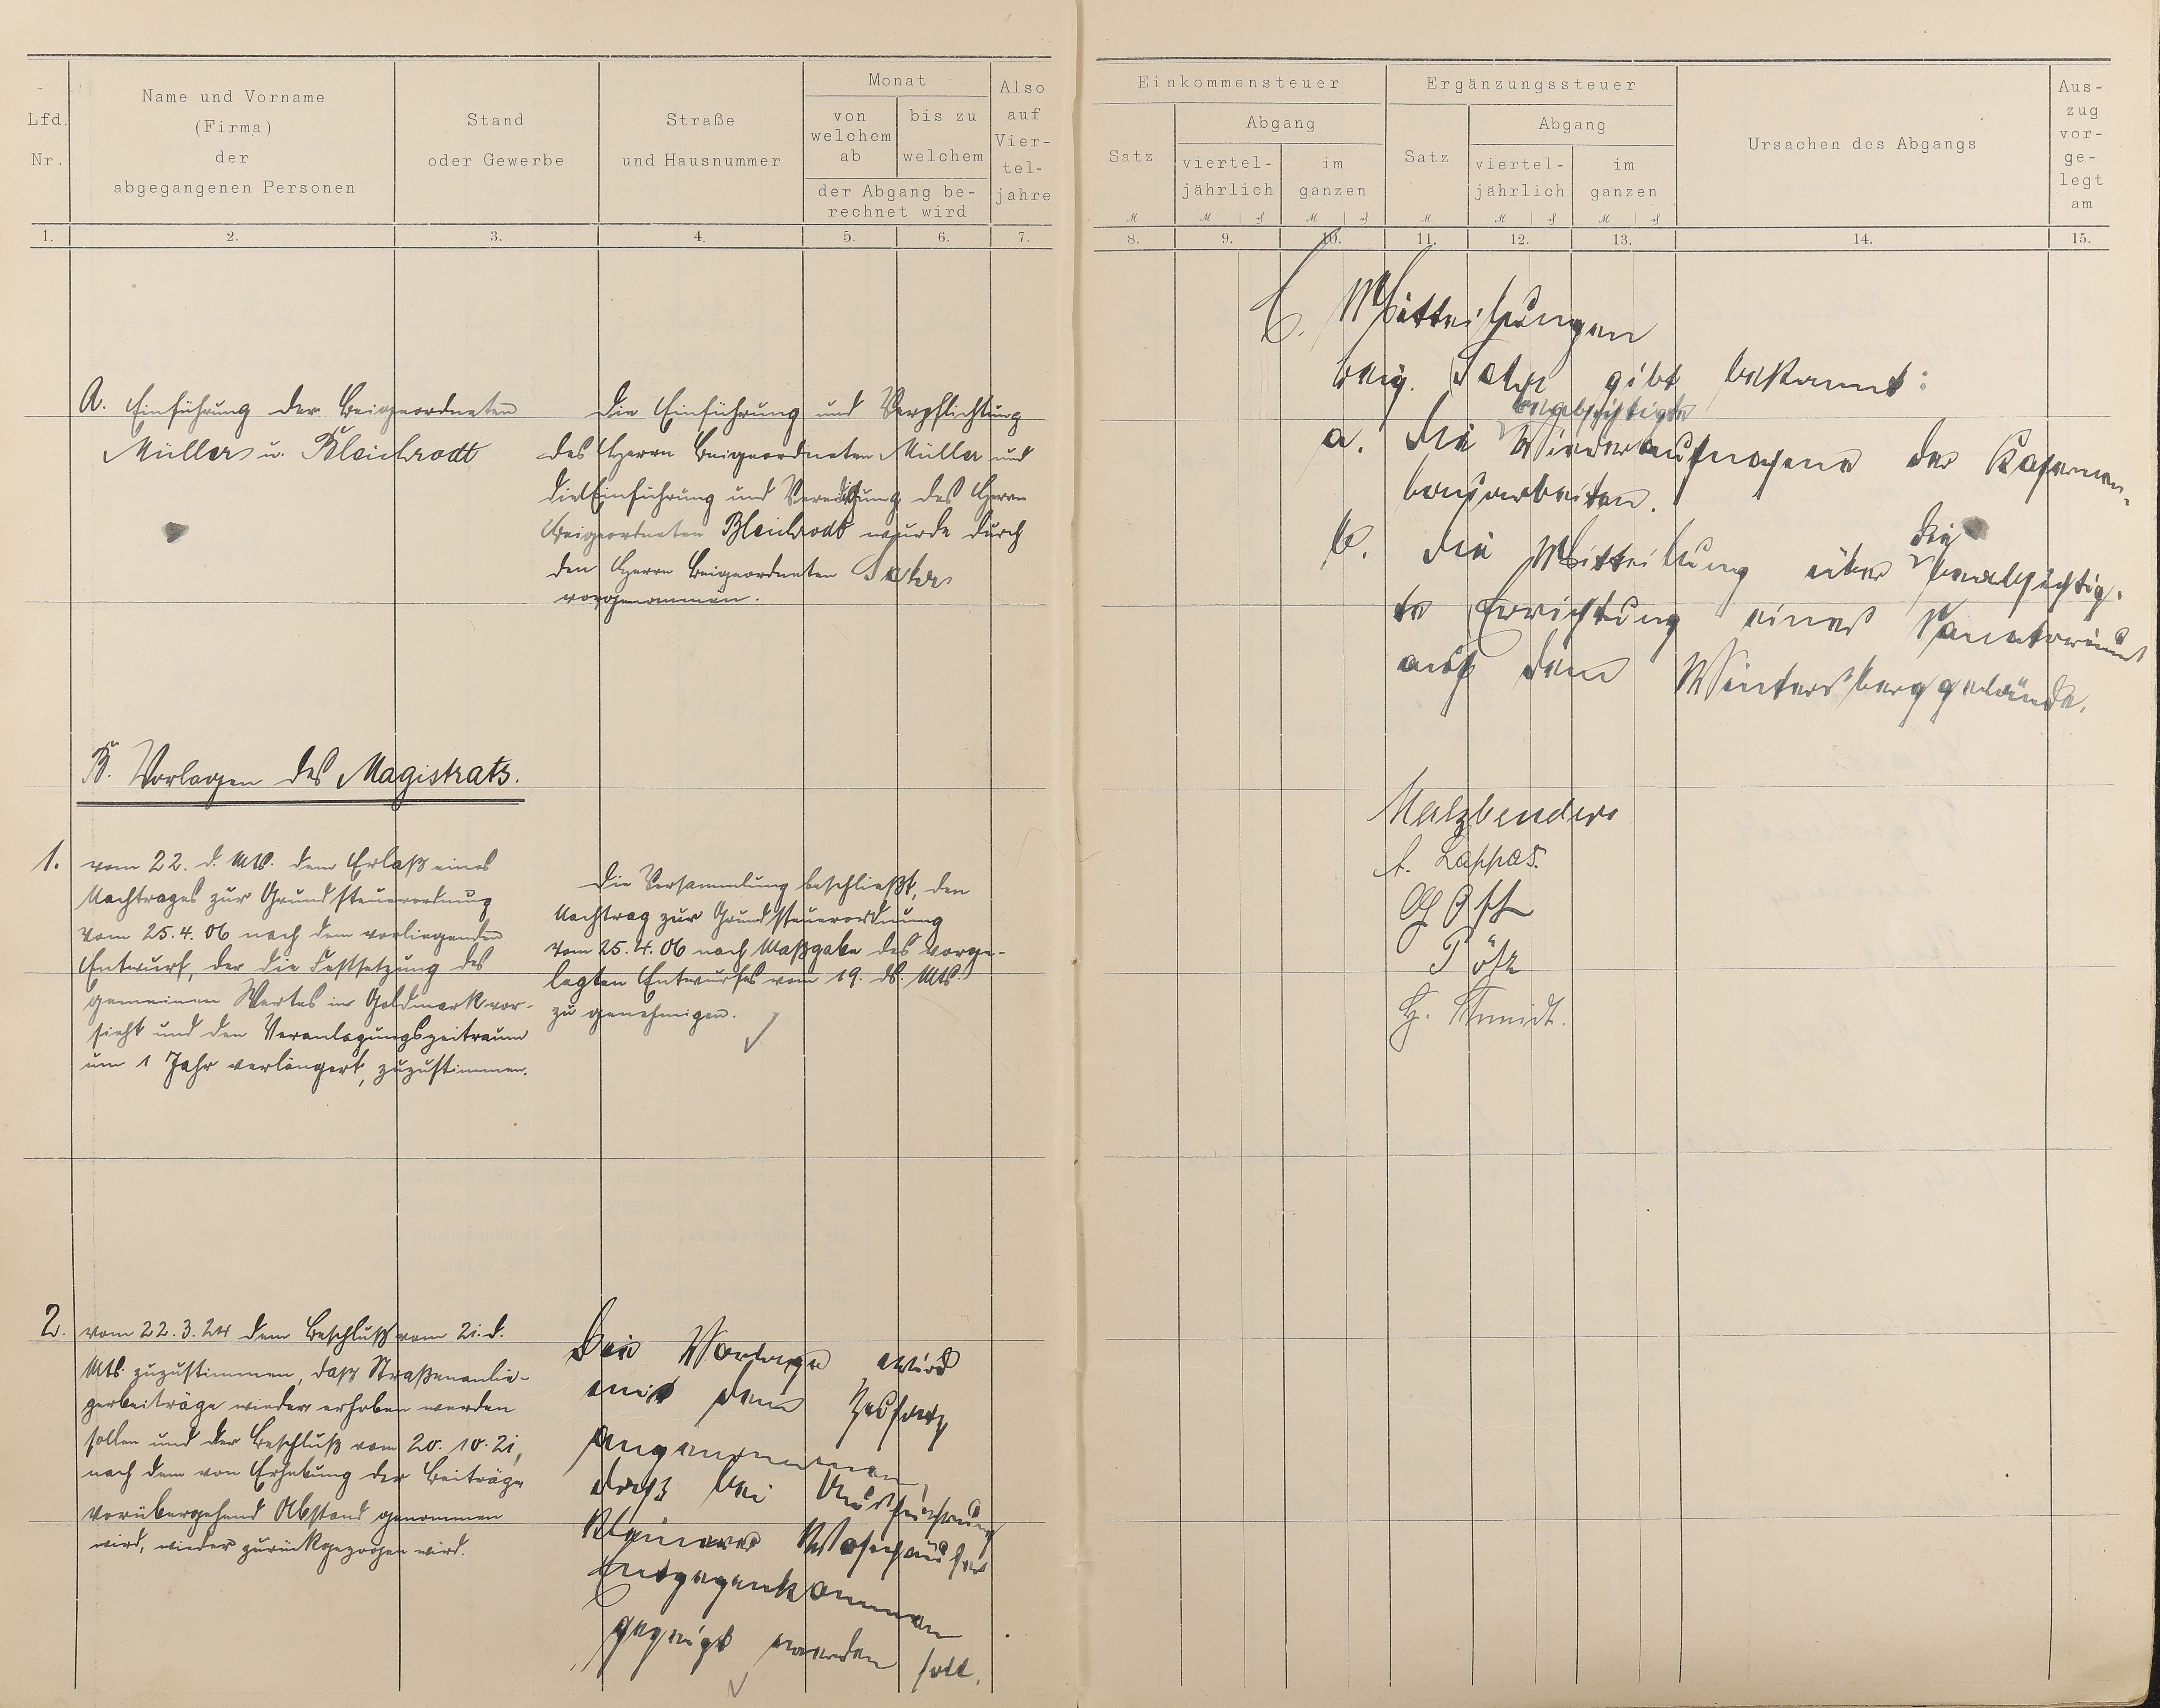 Lfd. Nr.
Name und Vorname
(Firma)
der
abgegangenen Personen
Stand
oder Gewerbe
Straße
und Hausnummer
Monat
von welchem ab
bis zu welchem
der Abgang be-
rechnet wird
Also auf Vier-tel-jahre
1. 2. 3. 4. 5. 6. 7.
A. Einführung der Beigeordneten
Müller u. Bleichrodt
Die Einführung und Verpflichtung
des Herrn Beigeordneten Müller und
die Einführung und Vereidigung des Herrn
Beigeordneten Bleichrodt wurde durch
den Herrn Beigeordneten
vorgenommen.
B. Vorlagen des Magistrats.
1. vom 22. d. Mts. dem Erlaß eines
Nachtrages zur Grundsteuerordnung
vom 25.4.06 nach dem vorliegenden
Entwurf, der die Festsetzung des
gemeinen Wertes in Goldmark vor-
sieht und den Veranlagungszeitraum
um 1 Jahr verlängert, zuzustimmen.
Die Versammlung beschließt, den
Nachtrag zur Grundsteuerordnung
vom 25.4.06 nach Maßgabe des vorge-
legten Entwurfes vom 19. ds. Mts.
zu genehmigen.
2. vom 22.3.24 dem Beschluß vom 21. d.
Mts. zuzustimmen, daß Straßenanlie-
gerbeiträge wieder erhoben werden
sollen und der Beschluß vom 20.10.21,
nach dem von Erhebung der Beiträge
vorübergehend Abstand genommen
wird, wieder zurückgezogen wird.
Die Vorlage wird
mit dem Zusatz
angenommen,
daß bei
kleinerer Wohnhäuser
Entgegenkommen
gezeigt werden soll.
Einkommensteuer
Satz
Abgang
viertel-
jährlich
im
ganzen
Ergänzungssteuer
Satz
Abgang
viertel-
jährlich
im
ganzen
Ursachen des Abgangs
Aus-
zug
vor-
ge-
legt
am
8. 9. 10. 11. 12. 13. 14. 15.
C. Mitteilungen
Beig. gibt bekannt:
beabsichtigte
a. die Wiederaufnahme der Kasernen-
bauarbeiten.
die
b. die Mitteilung über beabsichtig-
te Errichtung eines Sanatoriums
auf dem Wintersberggelände.
Malzbender
A. Lappas.
Ott
H. Schmidt.